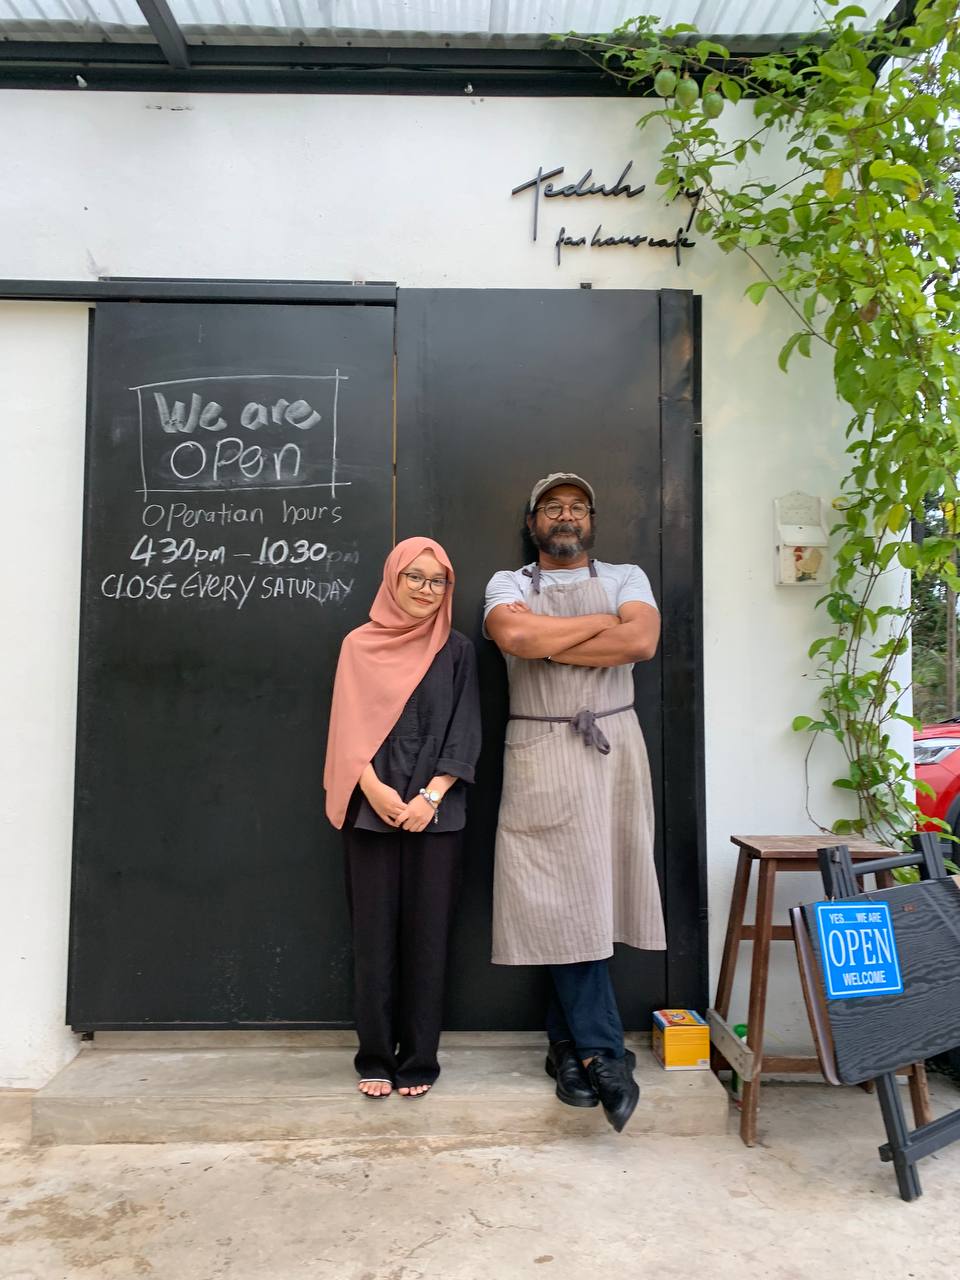 Teduh
fan hour cafe
We are
OPen
OPeratian hours
430pm - 10.30pm
CLOSE EVERY SATURDAY
YES.....WE ARE
OPEN
WELCOME